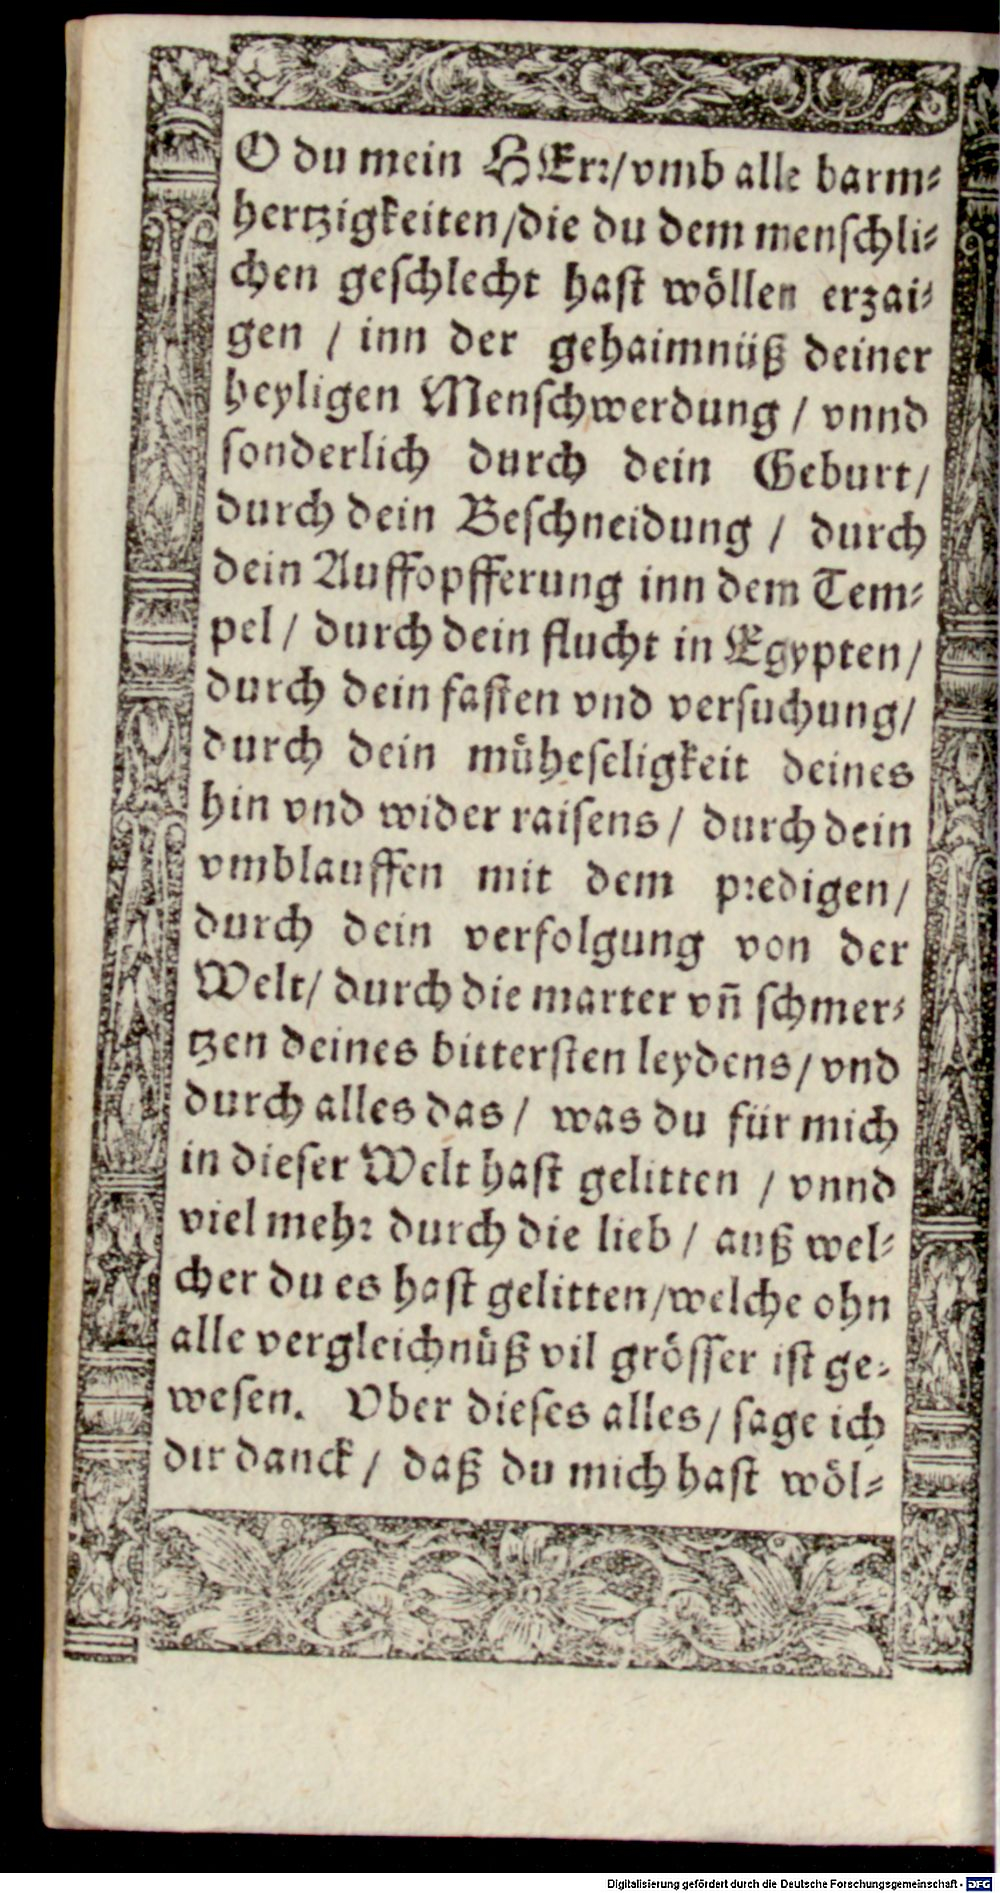 O du mein HErr/vmb alle barm⸗
hertzigkeiten/die du dem menschli⸗
chen geschlecht hast wöllen erzai⸗
gen / inn der gehaimnüß deiner
heyligen Menschwerdung / vnnd
sonderlich durch dein Geburt/
durch dein Beschneidung / durch
dein Auffopfferung inn dem Tem⸗
pel / durch dein flucht in Egypten/
durch dein fasten vnd versuchung/
durch dein müheseligkeit deines
hin vnd wider raisens / durch dein
vmblauffen mit dem predigen/
durch dein verfolgung von der
Welt/ durch die marter vñ schmer⸗
tzen deines bittersten leydens/ vnd
durch alles das / was du für mich
in dieser Welt hast gelitten / vnnd
viel mehr durch die lieb / auß wel⸗
cher du es hast gelitten/welche ohn
alle vergleichnüß vil grösser ist ge⸗
wesen. Vber dieses alles/ sage ich
dir danck / daß du mich hast wöl⸗
Digitalisierung gefördert durch die Deutsche Forschungsgemeinschaft - DFG